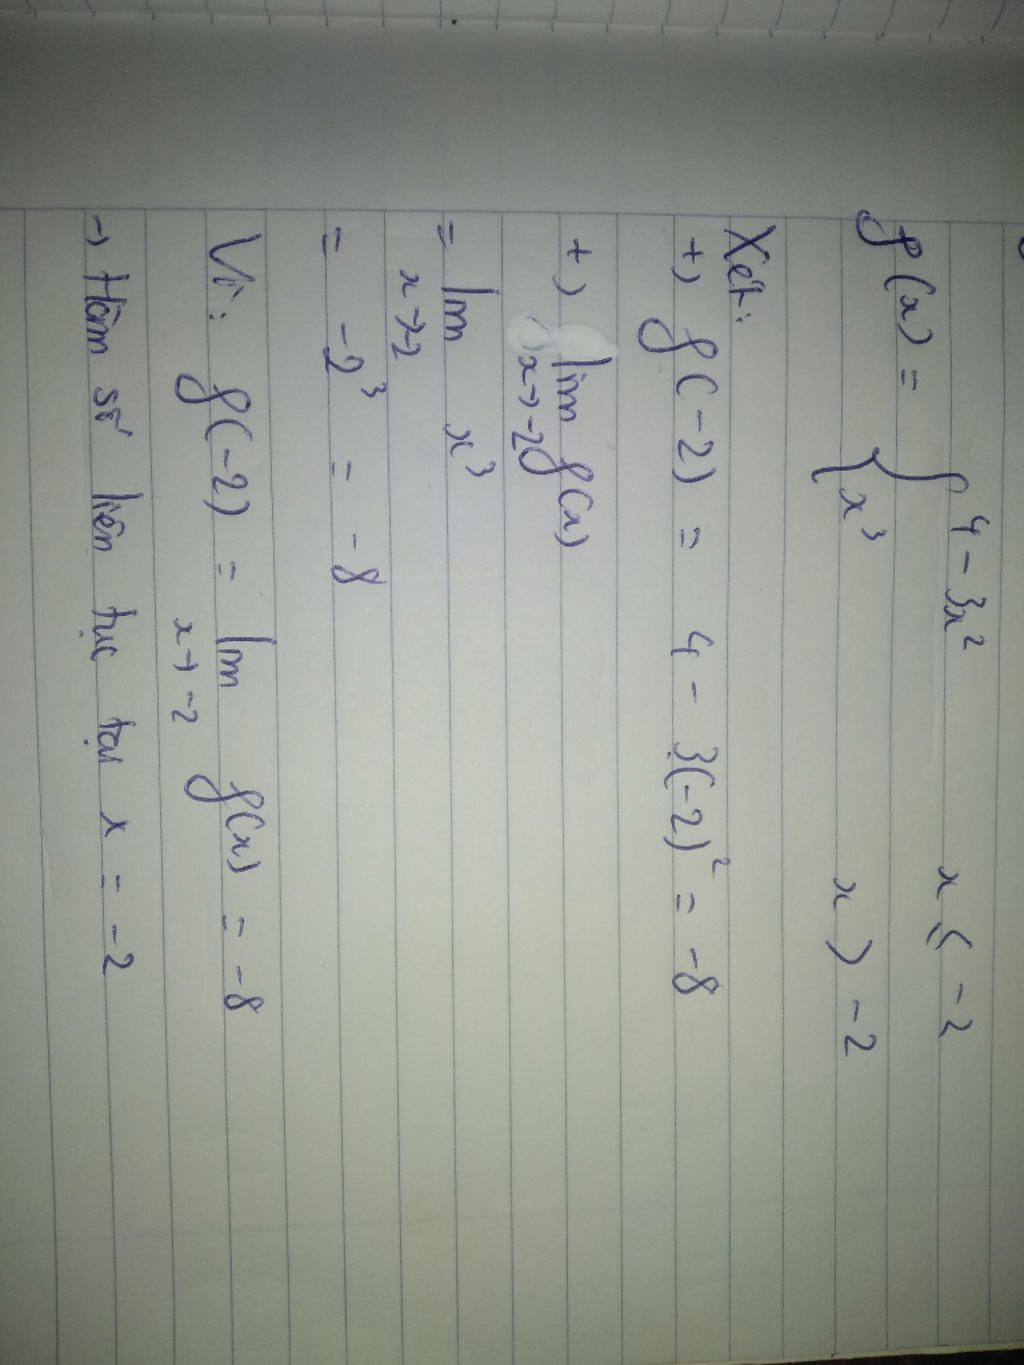 f(x) = { 4 - 3x² x ≤ -2
{ x³ x > -2
Xét:
+) f(-2) = 4 - 3(-2)² = -8
+) lim f(x)
x→-2
= lim x³
x→-2
= -2³ = -8
Vì: f(-2) = lim f(x) = -8
x→-2
→ Hàm số liên tục tại x = -2